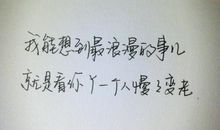 我能想到最浪漫的事儿
就是看你丫一个人慢々变老